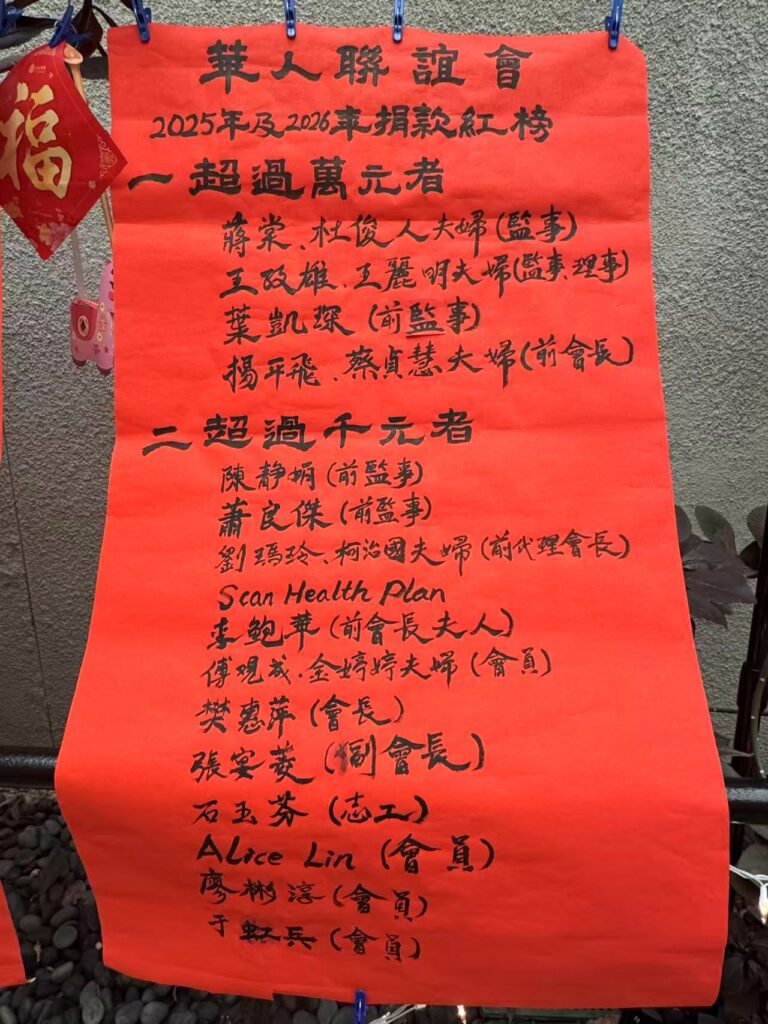 福
華人聯誼會
2025年及2026年捐款紅榜
一超過萬元者
蔣棠、杜俊人夫婦(監事)
王政雄、王麗明夫婦(監事、理事)
葉凱琛(前監事)
楊平飛、蔡貞慧夫婦(前會長)
二超過千元者
陳靜娟(前監事)
蕭良傑(前監事)
劉瑪玲、柯治國夫婦(前代理會長)
Scan Health Plan
李鮑華(前會長夫人)
傅觀成、金婷婷夫婦(會員)
樊惠萍(會長)
張宴菱(副會長)
石玉芬(志工)
Alice Lin (會員)
廖彬淳(會員)
于兵(會員)